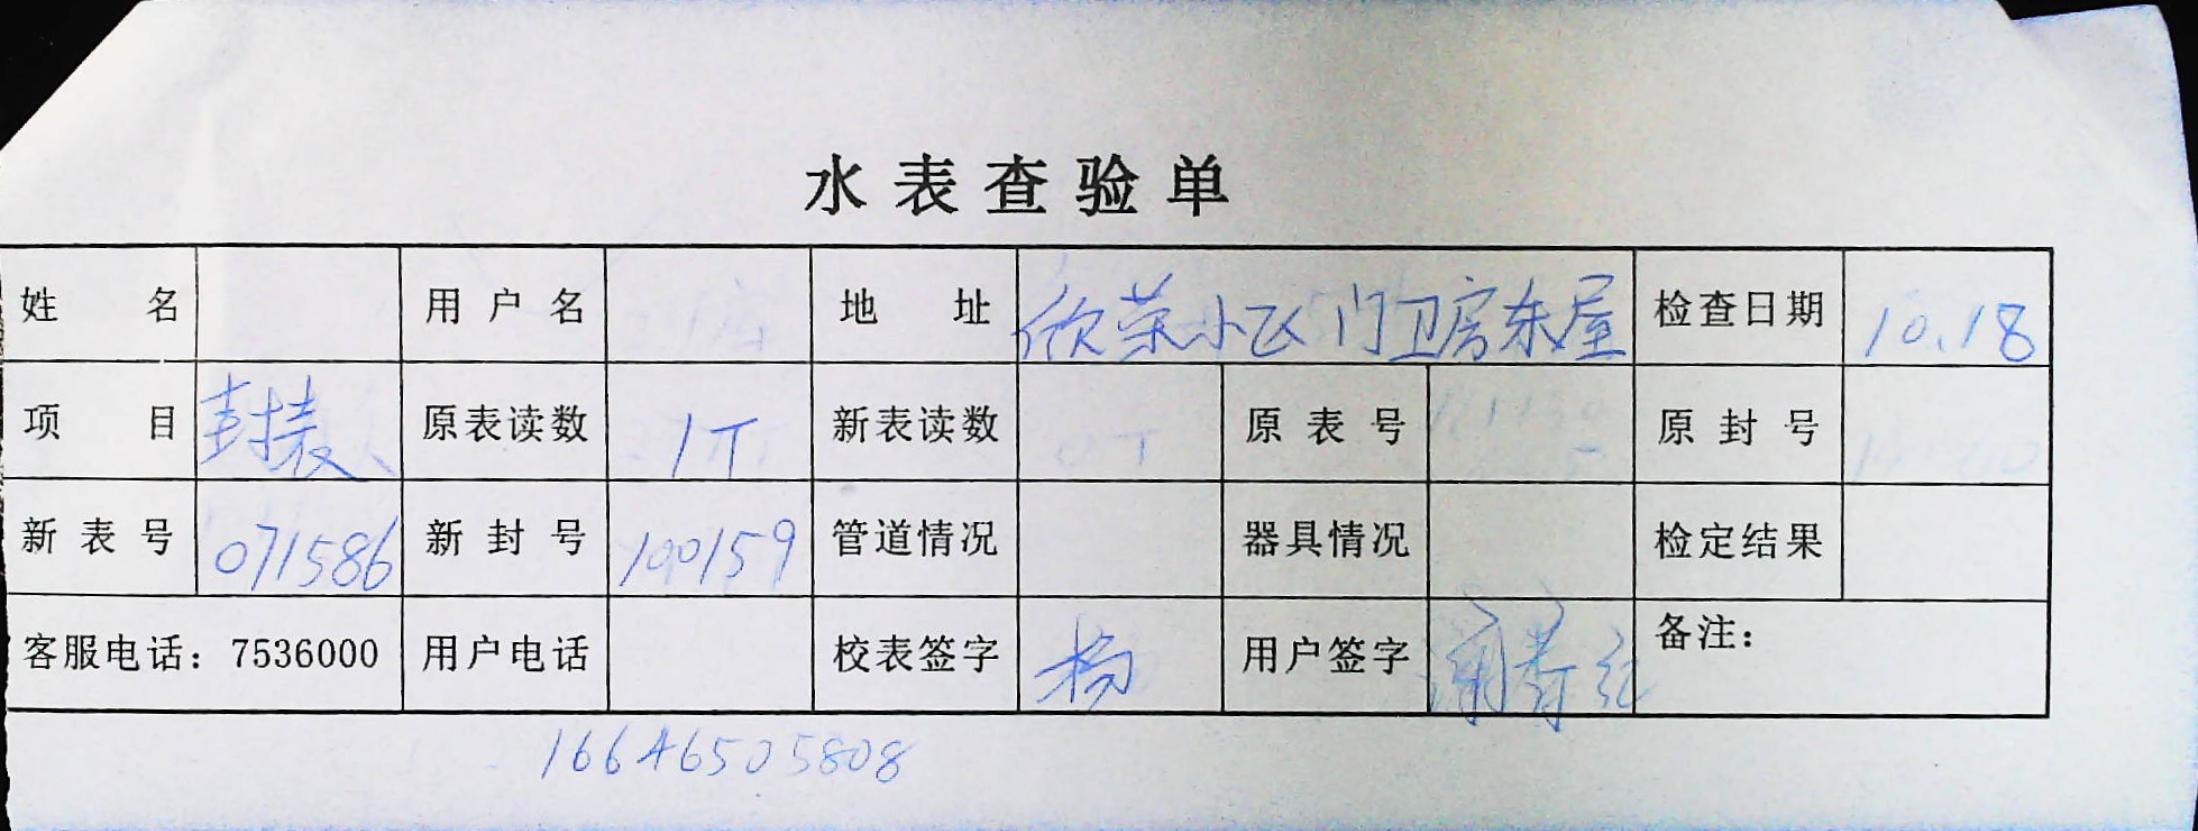 水表查验单
姓名 用户名 地址 欣荣小区门卫房东屋 检查日期 10.18
项目 封表 原表读数 1T 新表读数 原表号 原封号
新表号 071586 新封号 100159 管道情况 器具情况 检定结果
客服电话：7536000 用户电话 校表签字 杨 用户签字 备注：
16646505808